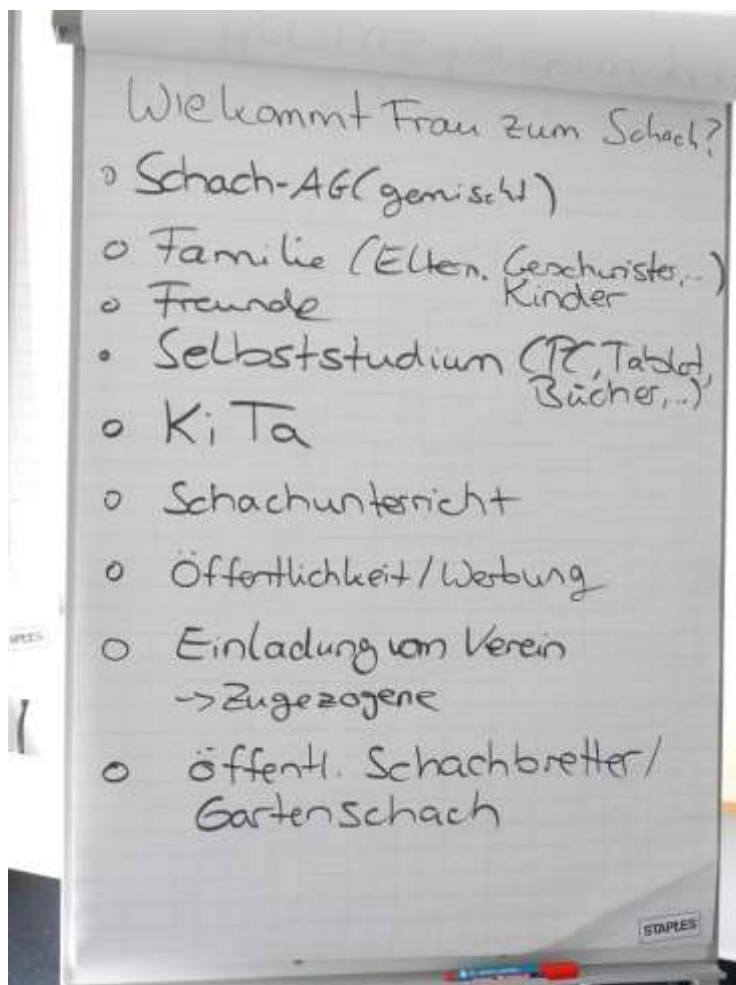 Wie kommt Frau zum Schach?
o Schach-AG (gemischt)
o Familie (Eltern, Geschwister,..)
Kinder
o Freunde
• Selbststudium (PC, Tablet,
Bücher,..)
o KiTa
o Schachunterricht
o Öffentlichkeit/Werbung
o Einladung vom Verein
-> Zugezogene
o öffentl. Schachbretter/
Gartenschach
STAPLES